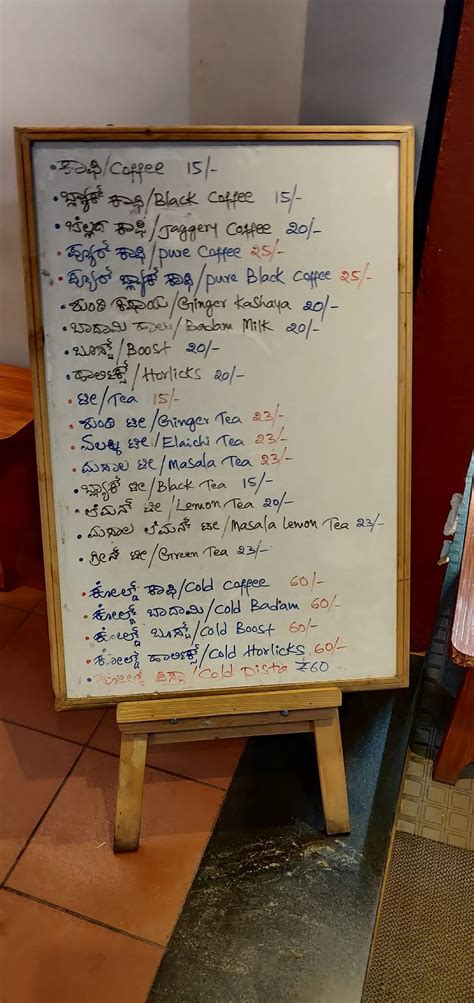 • ಕಾಫಿ/Coffee 15/-
• ಬ್ಲ್ಯಾಕ್ ಕಾಫಿ/Black Coffee 15/-
• ಬೆಲ್ಲದ ಕಾಫಿ/Jaggery Coffee 20/-
• ಪ್ಯೂರ್ ಕಾಫಿ/pure Coffee 25/-
• ಪ್ಯೂರ್ ಬ್ಲ್ಯಾಕ್ ಕಾಫಿ/pure Black Coffee 25/-
• ಶುಂಠಿ ಕಷಾಯ/Ginger Kashaya 20/-
• ಬಾದಾಮಿ ಹಾಲು/Badam Milk 20/-
• ಬೂಸ್ಟ್/Boost 20/-
• ಹಾರ್ಲಿಕ್ಸ್/Horlicks 20/-
• ಟೀ/Tea 15/-
• ಶುಂಠಿ ಟೀ/Ginger Tea 23/-
• ಏಲಕ್ಕಿ ಟೀ/Elaichi Tea 23/-
• ಮಸಾಲ ಟೀ/Masala Tea 23/-
• ಬ್ಲ್ಯಾಕ್ ಟೀ/Black Tea 15/-
• ಲೆಮನ್ ಟೀ/Lemon Tea 20/-
• ಮಸಾಲ ಲೆಮನ್ ಟೀ/Masala Lemon Tea 23/-
• ಗ್ರೀನ್ ಟೀ/Green Tea 23/-
• ಕೋಲ್ಡ್ ಕಾಫಿ/Cold Coffee 60/-
• ಕೋಲ್ಡ್ ಬಾದಾಮಿ/Cold Badam 60/-
• ಕೋಲ್ಡ್ ಬೂಸ್ಟ್/Cold Boost 60/-
• ಕೋಲ್ಡ್ ಹಾರ್ಲಿಕ್ಸ್/Cold Horlicks 60/-
• ಕೋಲ್ಡ್ /Cold ₹60